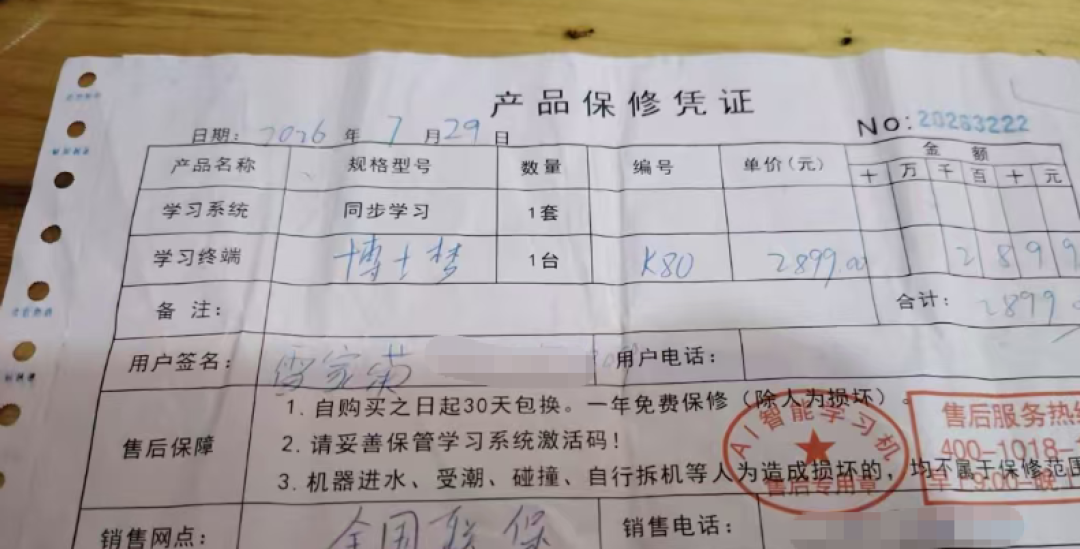 产品保修凭证
日期: 2026 年 7 月 29 日
NO: 20263222
产品名称 规格型号 数量 编号 单价(元) 金额
十 万 千 百 十 元
学习系统 同步学习 1套
学习终端 博士梦 1台 K80 2899.00 2 8 9 9
备 注: 合计: 2899.
用户签名: 雷家菊 用户电话:
售后保障
1. 自购买之日起30天包换。一年免费保修(除人为损坏)。
2. 请妥善保管学习系统激活码!
3. 机器进水、受潮、碰撞、自行拆机等人为造成损坏的,均不属于保修范围
AI智能学习机
售后专用章
售后服务热线
400-1018-
早上9:00-晚上
销售网点: 全国联保 销售电话: